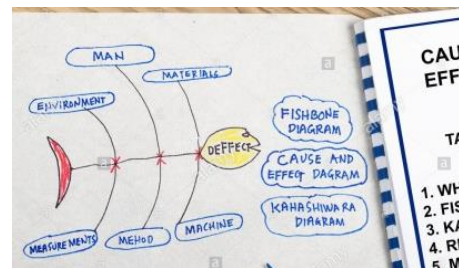 MAN
MATERIALS
ENVIRONMENT
DEFFECT
MEASUREMENTS
MEHOD
MACHINE
FISHBONE
DIAGRAM
CAUSE AND
EFFECT DAGRAM
KAHASHIWARA
DIAGRAM
CAU
EFF
TA
1. WH
2. FIS
3. KA
4. RE
5. M